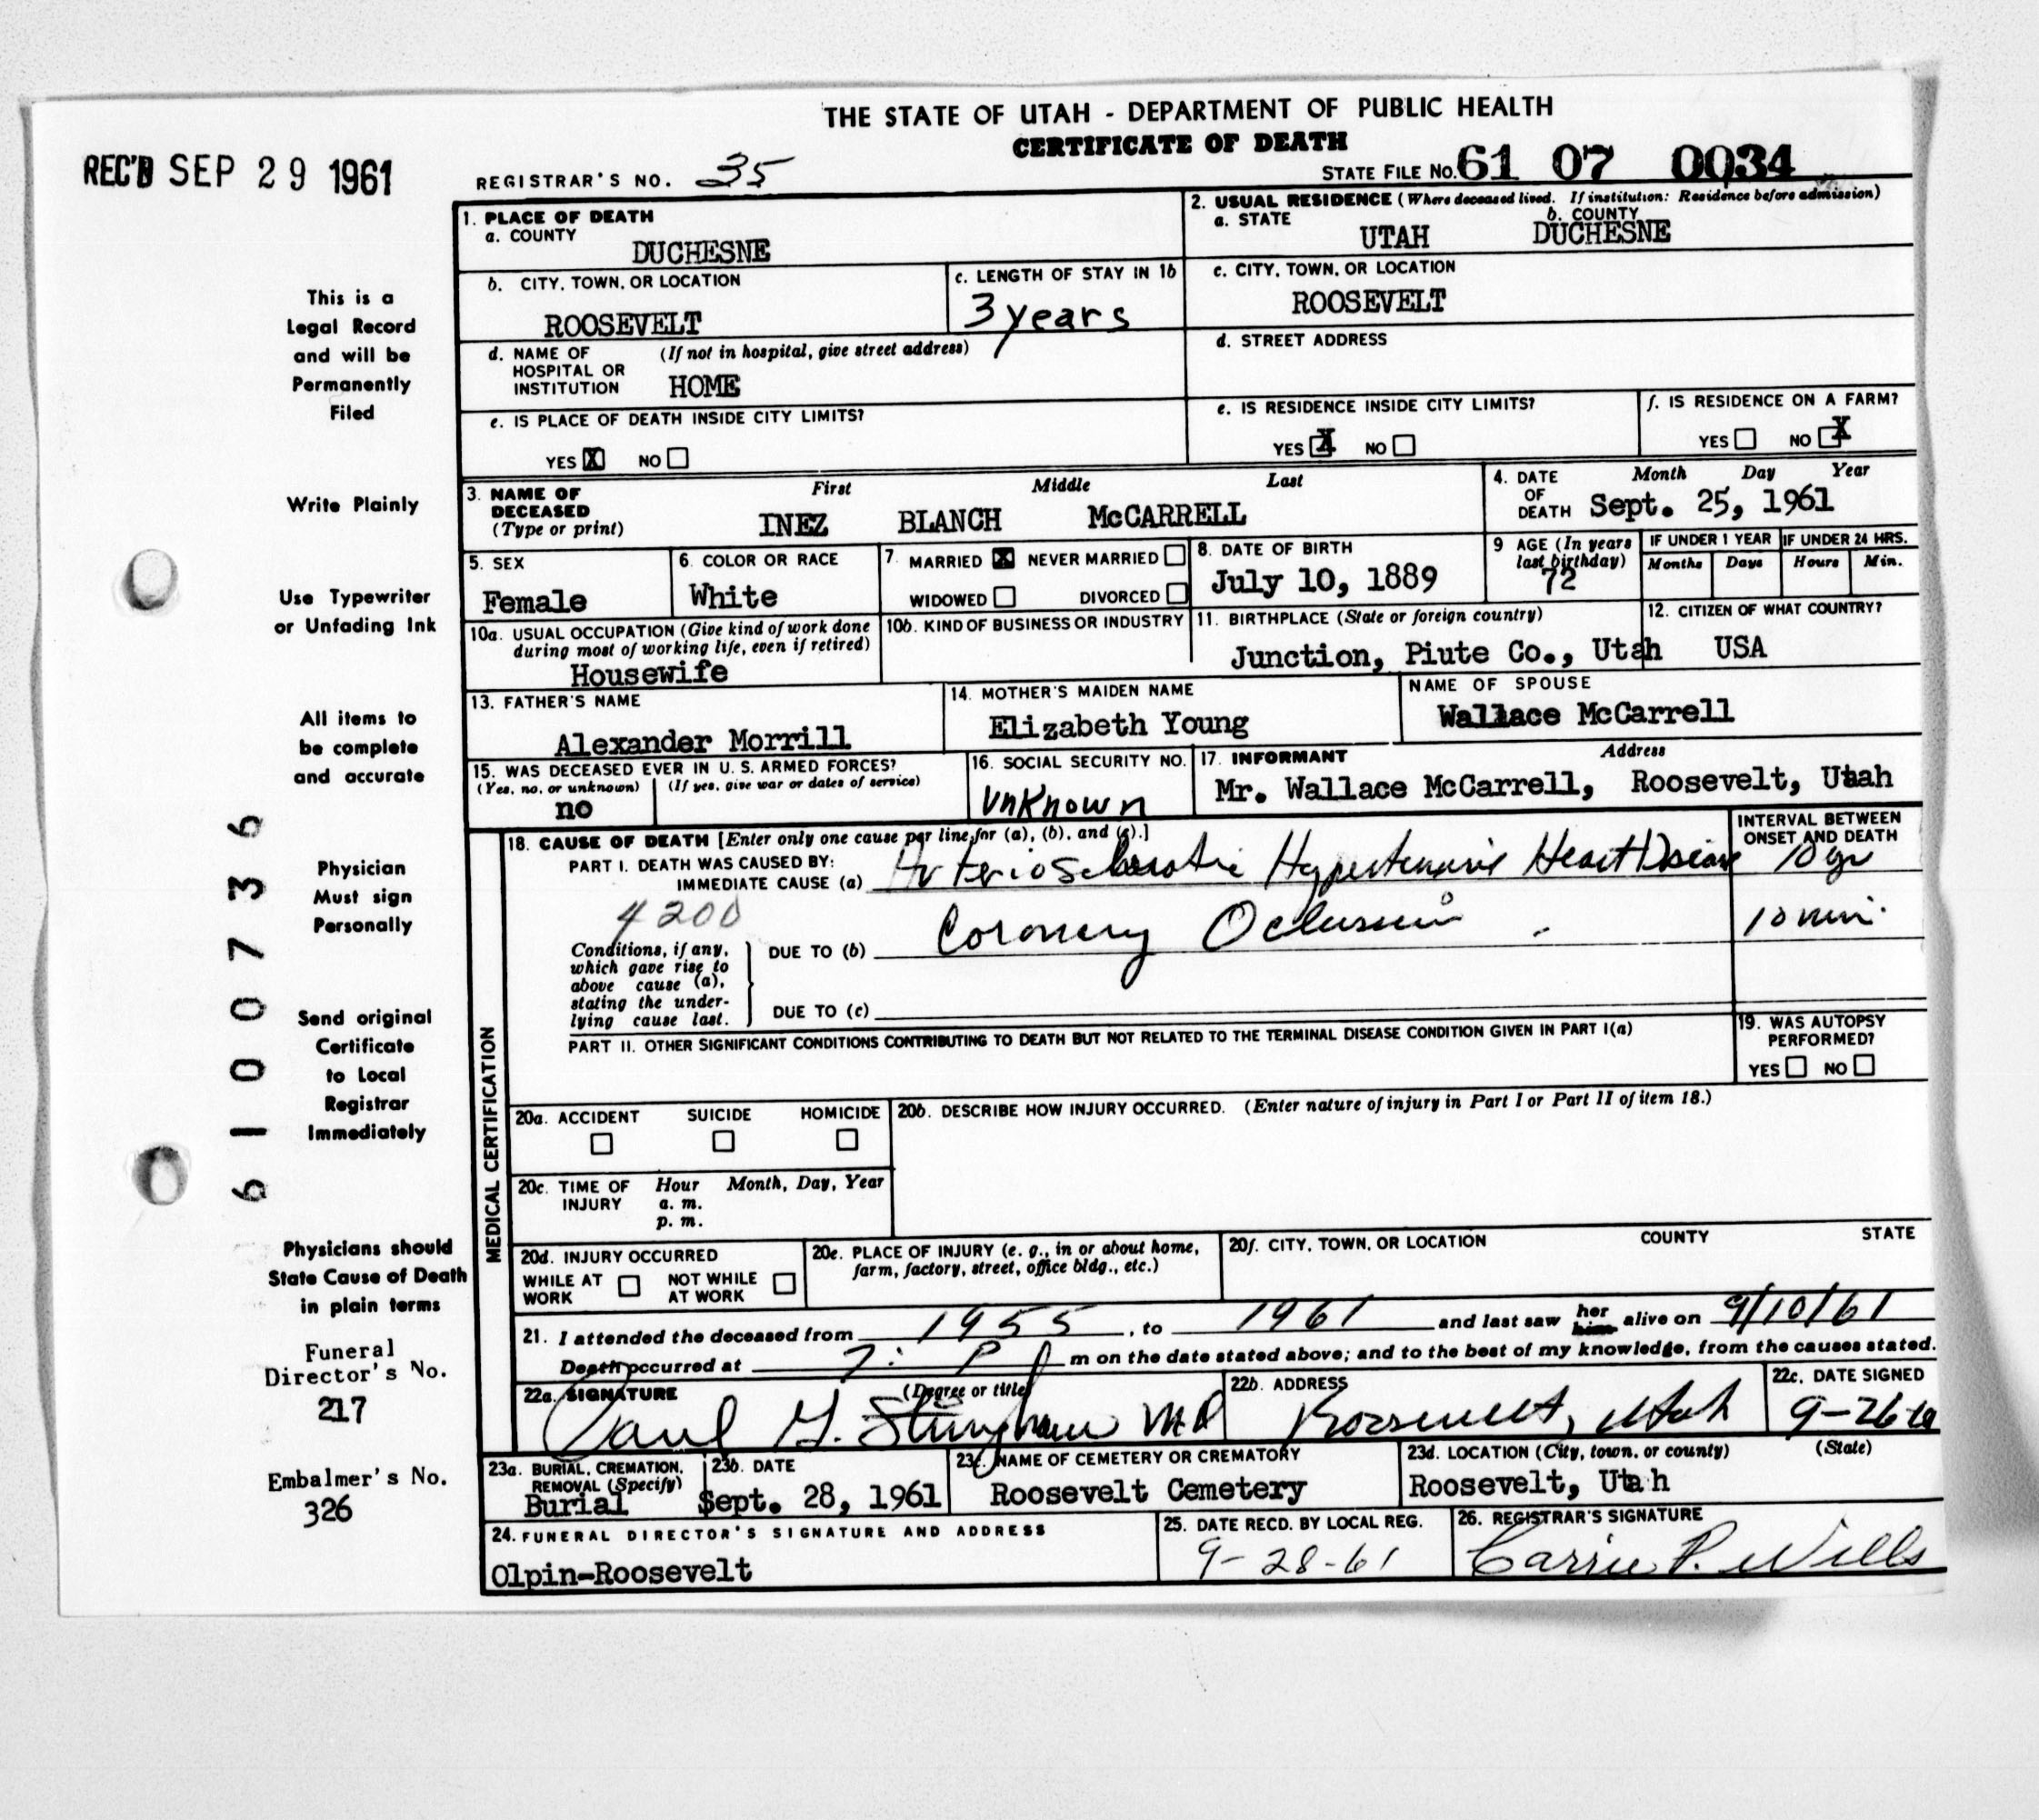 THE STATE OF UTAH - DEPARTMENT OF PUBLIC HEALTH
CERTIFICATE OF DEATH
REC'D SEP 29 1961
REGISTRAR'S NO. 35
STATE FILE NO. 61 07 0034
1. PLACE OF DEATH
a. COUNTY
DUCHESNE
2. USUAL RESIDENCE (Where deceased lived. If institution: Residence before admission)
a. STATE b. COUNTY
UTAH DUCHESNE
b. CITY, TOWN, OR LOCATION
ROOSEVELT
c. LENGTH OF STAY IN 1b
3 years
c. CITY, TOWN, OR LOCATION
ROOSEVELT
d. NAME OF (If not in hospital, give street address)
HOSPITAL OR
INSTITUTION HOME
d. STREET ADDRESS
e. IS PLACE OF DEATH INSIDE CITY LIMITS?
YES X NO
e. IS RESIDENCE INSIDE CITY LIMITS?
YES X NO
f. IS RESIDENCE ON A FARM?
YES NO X
3. NAME OF First Middle Last
DECEASED
(Type or print) INEZ BLANCH McCARRELL
4. DATE Month Day Year
OF
DEATH Sept. 25, 1961
5. SEX
Female
6. COLOR OR RACE
White
7. MARRIED X NEVER MARRIED
WIDOWED DIVORCED
8. DATE OF BIRTH
July 10, 1889
9 AGE (In years
last birthday)
72
IF UNDER 1 YEAR
Months Days
IF UNDER 24 HRS.
Hours Min.
10a. USUAL OCCUPATION (Give kind of work done
during most of working life, even if retired)
Housewife
10b. KIND OF BUSINESS OR INDUSTRY
11. BIRTHPLACE (State or foreign country)
Junction, Piute Co., Utah
12. CITIZEN OF WHAT COUNTRY?
USA
13. FATHER'S NAME
Alexander Morrill
14. MOTHER'S MAIDEN NAME
Elizabeth Young
NAME OF SPOUSE
Wallace McCarrell
15. WAS DECEASED EVER IN U. S. ARMED FORCES?
(Yes, no, or unknown) (If yes, give war or dates of service)
no
16. SOCIAL SECURITY NO.
Unknown
17. INFORMANT Address
Mr. Wallace McCarrell, Roosevelt, Utah
MEDICAL CERTIFICATION
18. CAUSE OF DEATH [Enter only one cause per line for (a), (b), and (c).]
INTERVAL BETWEEN
ONSET AND DEATH
PART I. DEATH WAS CAUSED BY:
IMMEDIATE CAUSE (a) Arteriosclerotic Hypertensive Heart Disease 10 yr
4200
Conditions, if any,
which gave rise to
above cause (a),
stating the under-
lying cause last.
DUE TO (b) Coronary Oclusion 10 min.
DUE TO (c)
PART II. OTHER SIGNIFICANT CONDITIONS CONTRIBUTING TO DEATH BUT NOT RELATED TO THE TERMINAL DISEASE CONDITION GIVEN IN PART I(a)
19. WAS AUTOPSY
PERFORMED?
YES NO
20a. ACCIDENT SUICIDE HOMICIDE
20b. DESCRIBE HOW INJURY OCCURRED. (Enter nature of injury in Part I or Part II of item 18.)
20c. TIME OF Hour Month, Day, Year
INJURY a. m.
p. m.
20d. INJURY OCCURRED
WHILE AT NOT WHILE
WORK AT WORK
20e. PLACE OF INJURY (e. g., in or about home,
farm, factory, street, office bldg., etc.)
20f. CITY, TOWN, OR LOCATION COUNTY STATE
21. I attended the deceased from 1955, to 1961 and last saw her him alive on 9/10/61
Death occurred at 7: P m on the date stated above; and to the best of my knowledge, from the causes stated.
22a. SIGNATURE (Degree or title)
Paul G. Stringham MD
22b. ADDRESS
Roosevelt, Utah
22c. DATE SIGNED
9-26-61
23a. BURIAL, CREMATION,
REMOVAL (Specify)
Burial
23b. DATE
Sept. 28, 1961
23c. NAME OF CEMETERY OR CREMATORY
Roosevelt Cemetery
23d. LOCATION (City, town, or county) (State)
Roosevelt, Utah
24. FUNERAL DIRECTOR'S SIGNATURE AND ADDRESS
Olpin-Roosevelt
25. DATE RECD. BY LOCAL REG.
9-28-61
26. REGISTRAR'S SIGNATURE
Carrie P. Wills
This is a
Legal Record
and will be
Permanently
Filed
Write Plainly
Use Typewriter
or Unfading Ink
All items to
be complete
and accurate
Physician
Must sign
Personally
Send original
Certificate
to Local
Registrar
Immediately
Physicians should
State Cause of Death
in plain terms
Funeral
Director's No.
217
Embalmer's No.
326
6100736